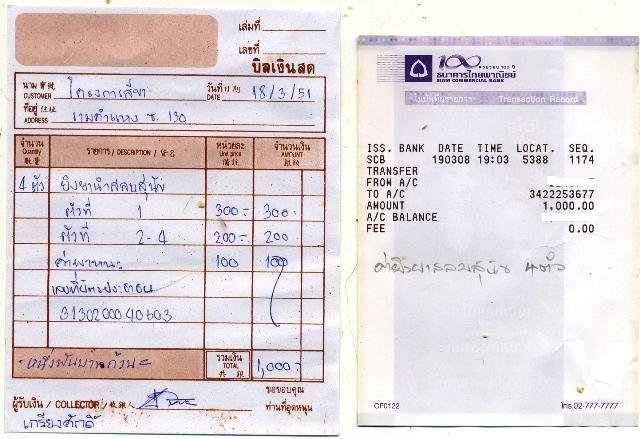 เล่มที่
เลขที่
บิลเงินสด
นาม
CUSTOMER
โครงการสี่ขา
วันที่
DATE
18/3/51
ที่อยู่ 住址
ADDRESS
รามคำแหง ซ. 130
จำนวน
Quantity
รายการ / DESCRIPTION / 貨名
หน่วยละ
Unit price
จำนวนเงิน
AMOUNT
4 ตัว ยิงยานำสลบสุนัข
ตัวที่ 1 300- 300-
ตัวที่ 2-4 200- 200
ค่าพาหนะ 100 100
เลขที่บัตรประชาชน
หนึ่งพันบาทถ้วน
รวมเงิน
TOTAL
共銀
1,000-
ผู้รับเงิน / COLLECTOR /
เกรียงศักดิ์
ขอขอบคุณ
ท่านที่อุดหนุน
100 ครบรอบ 100 ปี
ธนาคารไทยพาณิชย์
SIAM COMMERCIAL BANK
ใบบันทึกรายการ Transaction Record
ISS. BANK DATE TIME LOCAT. SEQ.
SCB 190308 19:03 5388 1174
TRANSFER
FROM A/C
TO A/C 3422253677
AMOUNT 1,000.00
A/C BALANCE
FEE 0.00
ค่ายิงยาสลบสุนัข 4 ตัว
CF0122
โทร.02-777-7777